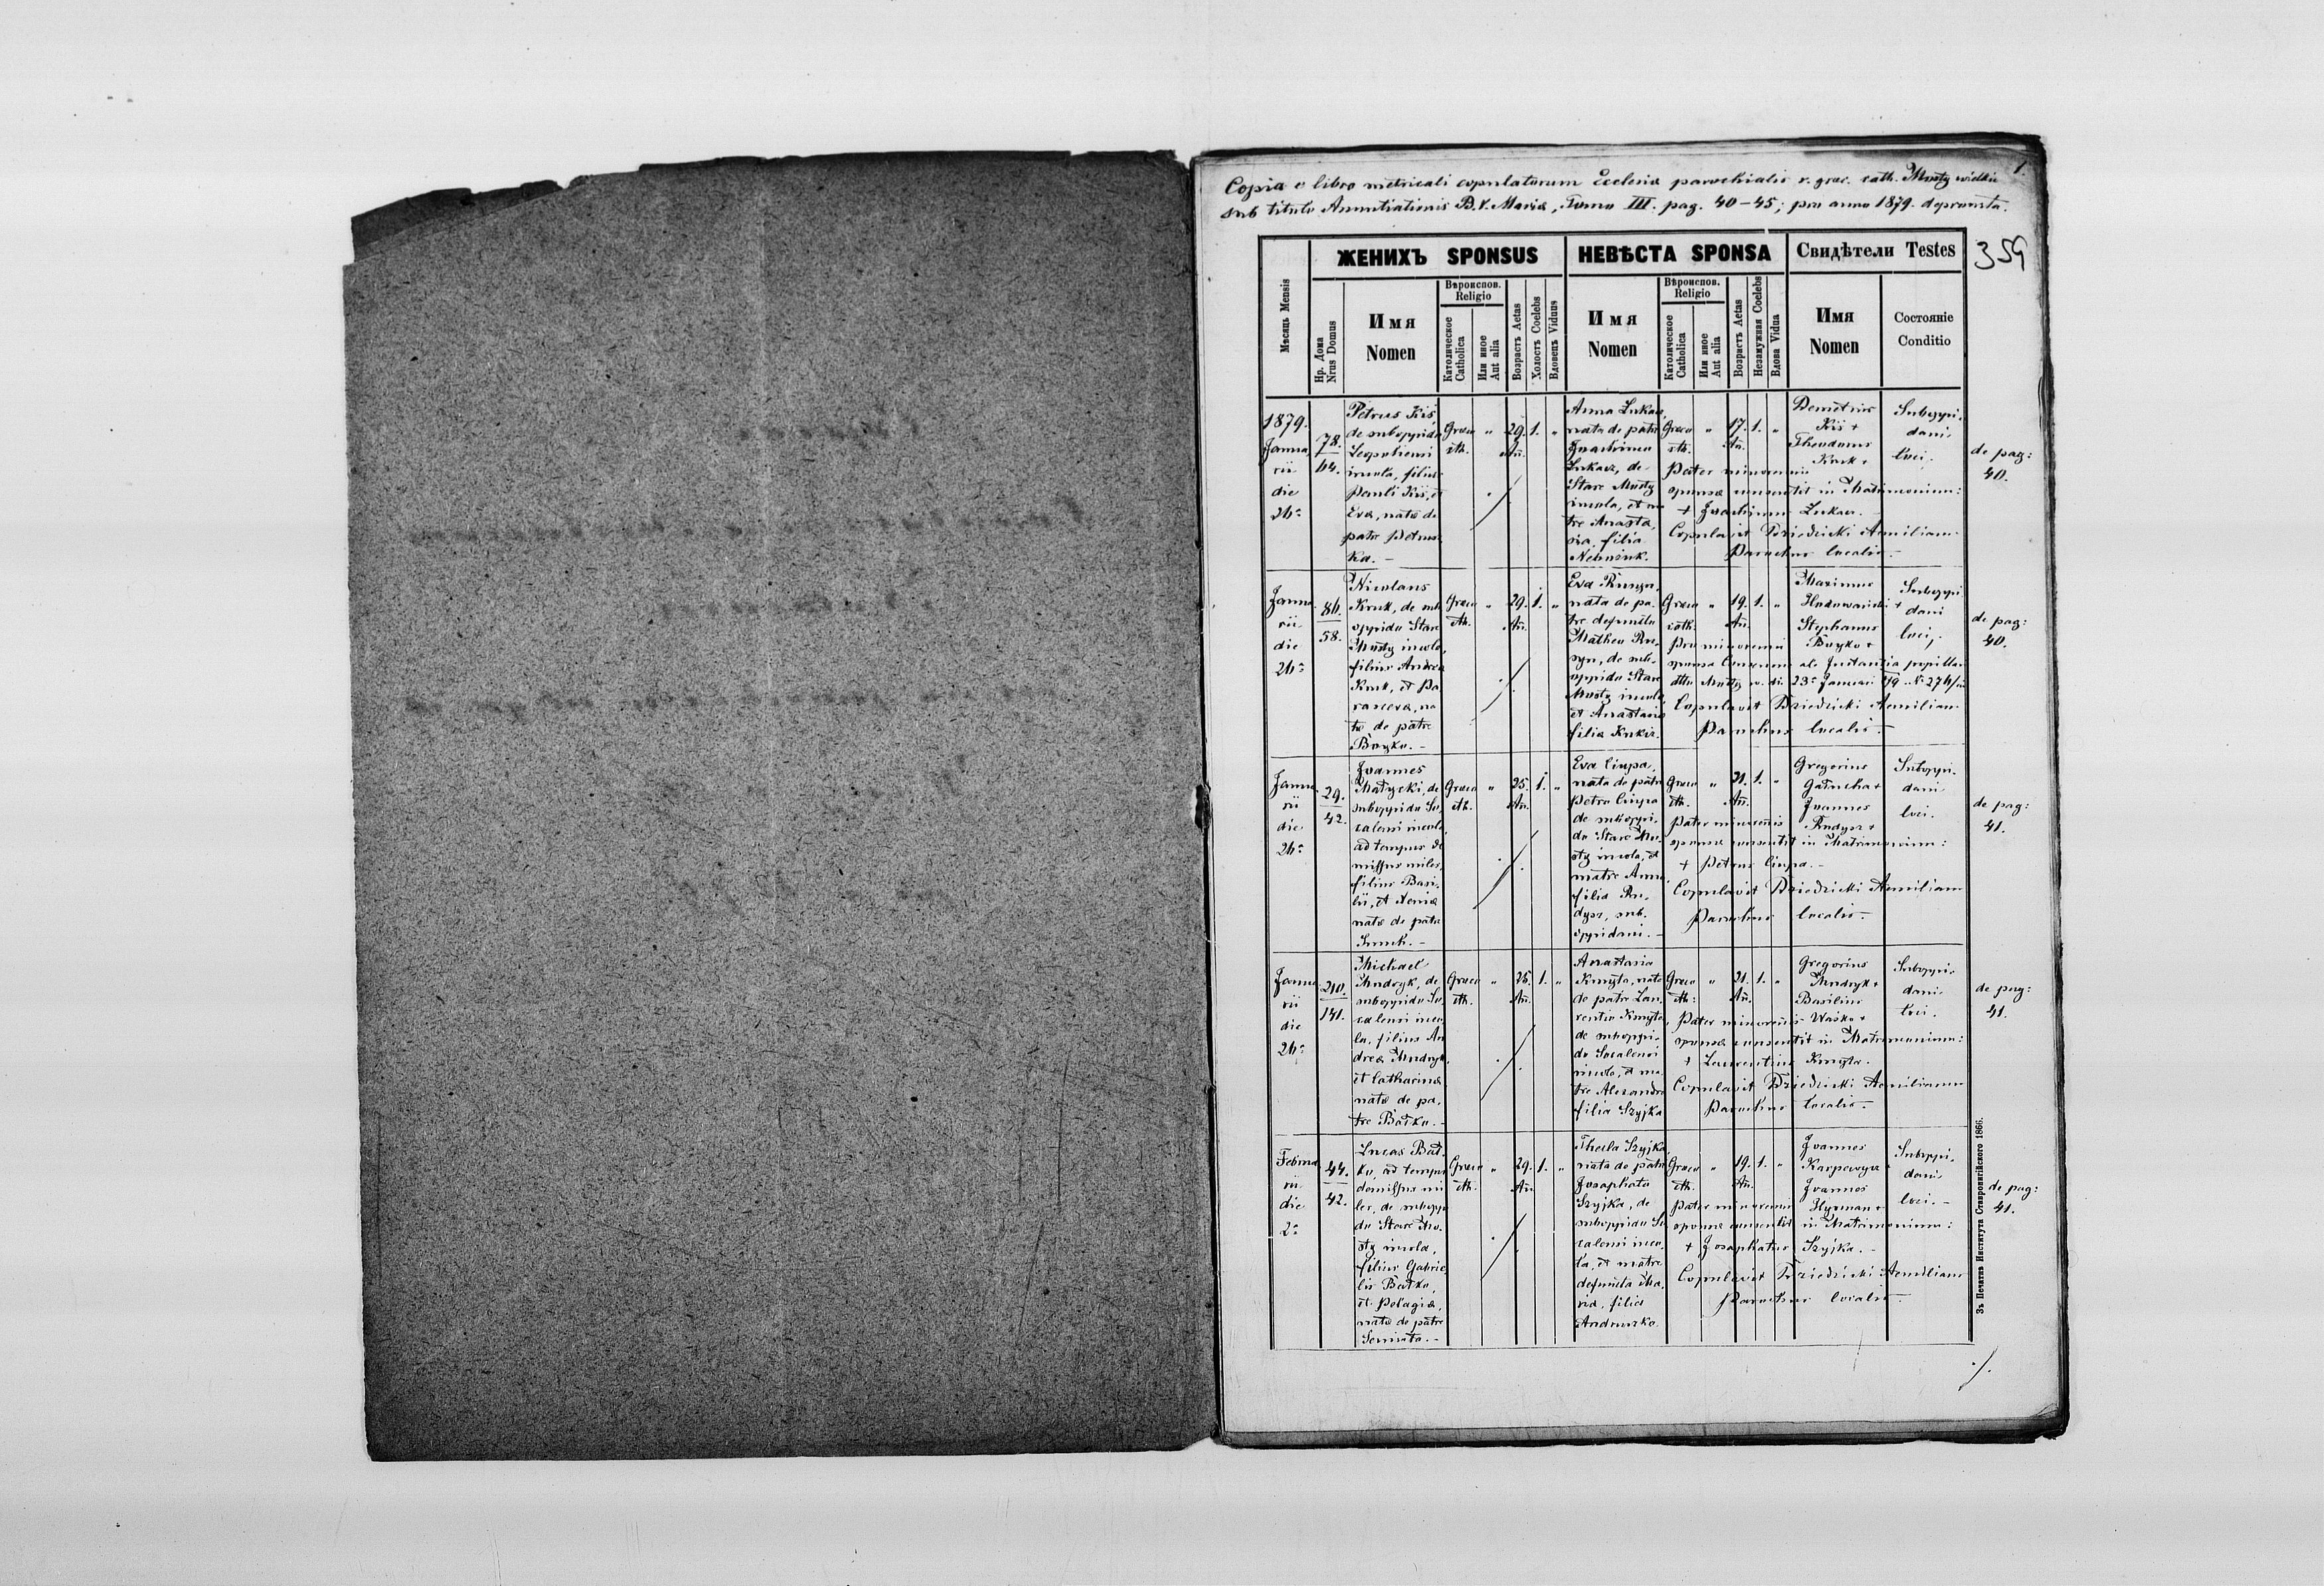 1.
Copia e libro metricali copulatorum Ecclesiæ parochialis r. græc. cath. Mosty wielkie
sub titulo Annuntiationis B. V. Mariæ, Tomo III. pag. 40-45; pro anno 1879. deprompta.
359
ЖЕНИХЪ SPONSUS
НЕВѢСТА SPONSA
Свидѣтели Testes
Мѣсяць Mensis
Нр. Дома
Nrus Domus
Имя
Nomen
Вѣроиспов.
Religio
Католическое
Catholica
Или иное
Aut alia
Возрастъ Aetas
Холостъ Coelebs
Вдовецъ Viduus
Имя
Nomen
Вѣроиспов.
Religio
Католическое
Catholica
Или иное
Aut alia
Возрастъ Aetas
Незамужная Coelebs
Вдова Vidua
Имя
Nomen
Состояніе
Conditio
1879.
Janua
rii
die
78.
64.
Petrus Kis,
de suboppido
incola, filius
Pauli Kis, et
Evæ, natæ de
patre Petrus
ka. -
Græco
cth.
"
29.
An.
1.
"
Anna Lukacz,
nata de patre
Joachimo
Lukacz, de
Stare Mosty
incola, et ma
tre Anasta
sia, filia
Græco
cth.
"
17.
An.
1.
"
Demetrius
Kis +
Theodorus
Kruk +
Suboppi
dani
loci.
Pater minorennis
sponsæ consentit in Matrimonium:
+ Joachimus Lukacz. -
Copulavit Dziedzicki Aemilianus
Parochus localis. -
de pag:
40.
Janua
rii
die
58.
Nicolaus
Kruk, de sub
oppido Stare
Mosty incola,
filius Andreæ
Kruk, et Pa
rascevæ, na
tæ de patre
Boyko. -
Græco
cth.
"
29.
An.
1.
"
Eva Rusyn,
nata de pa
tre defuncto
Matheo Ru
syn, de sub
oppido Stare
Mosty incola,
et Anastasia
filia
Græco
cath.
"
19.
An.
1.
"
Maximus
Stephanus
Boyko +
Suboppi
dani
loci,
Pro minorenni
sponsa Consensus
Copulavit Dziedzicki Aemilian
Parochus localis. -
de pag:
40.
Janua
rii
die
29.
42.
Joannes
Matycki, de
suboppido So
calensi incola,
ad tempus di
missus miles,
filius Basi
lii, et
natæ de patre
Græco
cth.
"
25.
An.
1.
"
Eva Ciupa,
nata de patre
Petro Ciupa
de suboppi
do Stare Mo
sty incola, et
matre Anna
filia Ru
dysz, sub
oppidani. -
Græco
cth.
"
21.
An.
1.
"
Gregorius
Joannes
Rudysz +
Suboppi
dani
loci.
Pater minorennis
sponsæ consentit in Matrimonium:
+ Petrus Ciupa. -
Copulavit Dziedzicki Aemilianus
Parochus localis. -
de pag:
41.
Janua
rii
die
210.
141.
Michael
Mudryk, de
suboppido So
calensi inco
la, filius An
dreæ Mudryk,
et Catharinæ
natæ de pa
tre Batko. -
Græco
cth.
"
1.
"
Anastasia
Kmyta, nata
de patre Lau
rentio Kmyta,
de suboppi
do Socalensi
incola, et ma
tre Alexandra
filia Szyjka
Græco
cth.
"
21.
An.
1.
"
Gregorius
Mudryk +
Basilius
Wasko +
Suboppi
dani
loci.
Pater minorennis
sponsæ consentit in Matrimonium:
+ Laurentius Kmyta.
Copulavit Dziedzicki Aemilianus
Parochus localis. -
de pag:
41.
Februa
rii
die
2ª
44.
42.
Lucas Bat
ko, ad tempus
dimissus mi
les, de suboppi
do Stare Mo
sty incola,
filius Gabrie
lis Batko,
et Pelagiæ,
natæ de patre
Græco
cth.
"
29.
An.
1.
"
Thecla Szyjka
nata de patre
Josaphato
Szyjka, de
suboppido So
calensi inco
la, et matre
defuncta Ma
ria, filia
Andruszko.
Græco
cth.
"
19.
An.
1.
"
Joannes
Karpowycz
Joannes
Hyrman +
Suboppi
dani
loci. -
Pater minorennis
sponsæ consentit in Matrimonium:
+ Josaphatus Szyjka. -
Copulavit Dziedzicki Aemilian
Parochus localis. -
de pag:
41.
Зъ Печатнѣ Института Ставропигійского 1866.
./.